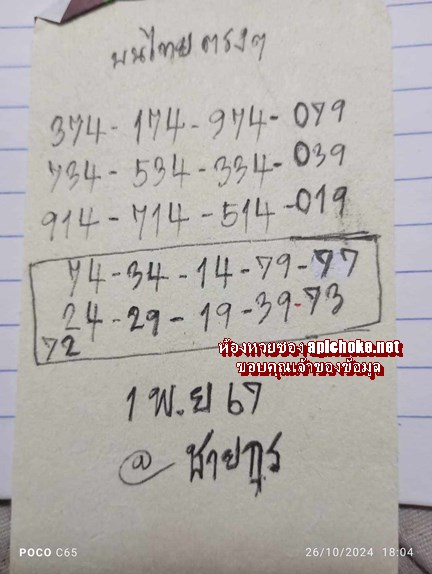 บนไทย ตรงๆ
374-174-974-079
734-534-334-039
914-714-514-019
74-34-14-79-77
24-29-19-39-73
72
ห้องหวยซอง apichoke.net
ขอบคุณเจ้าของข้อมูล
1 พ.ย 67
@ ชายกูร
POCO C65
26/10/2024 18:04